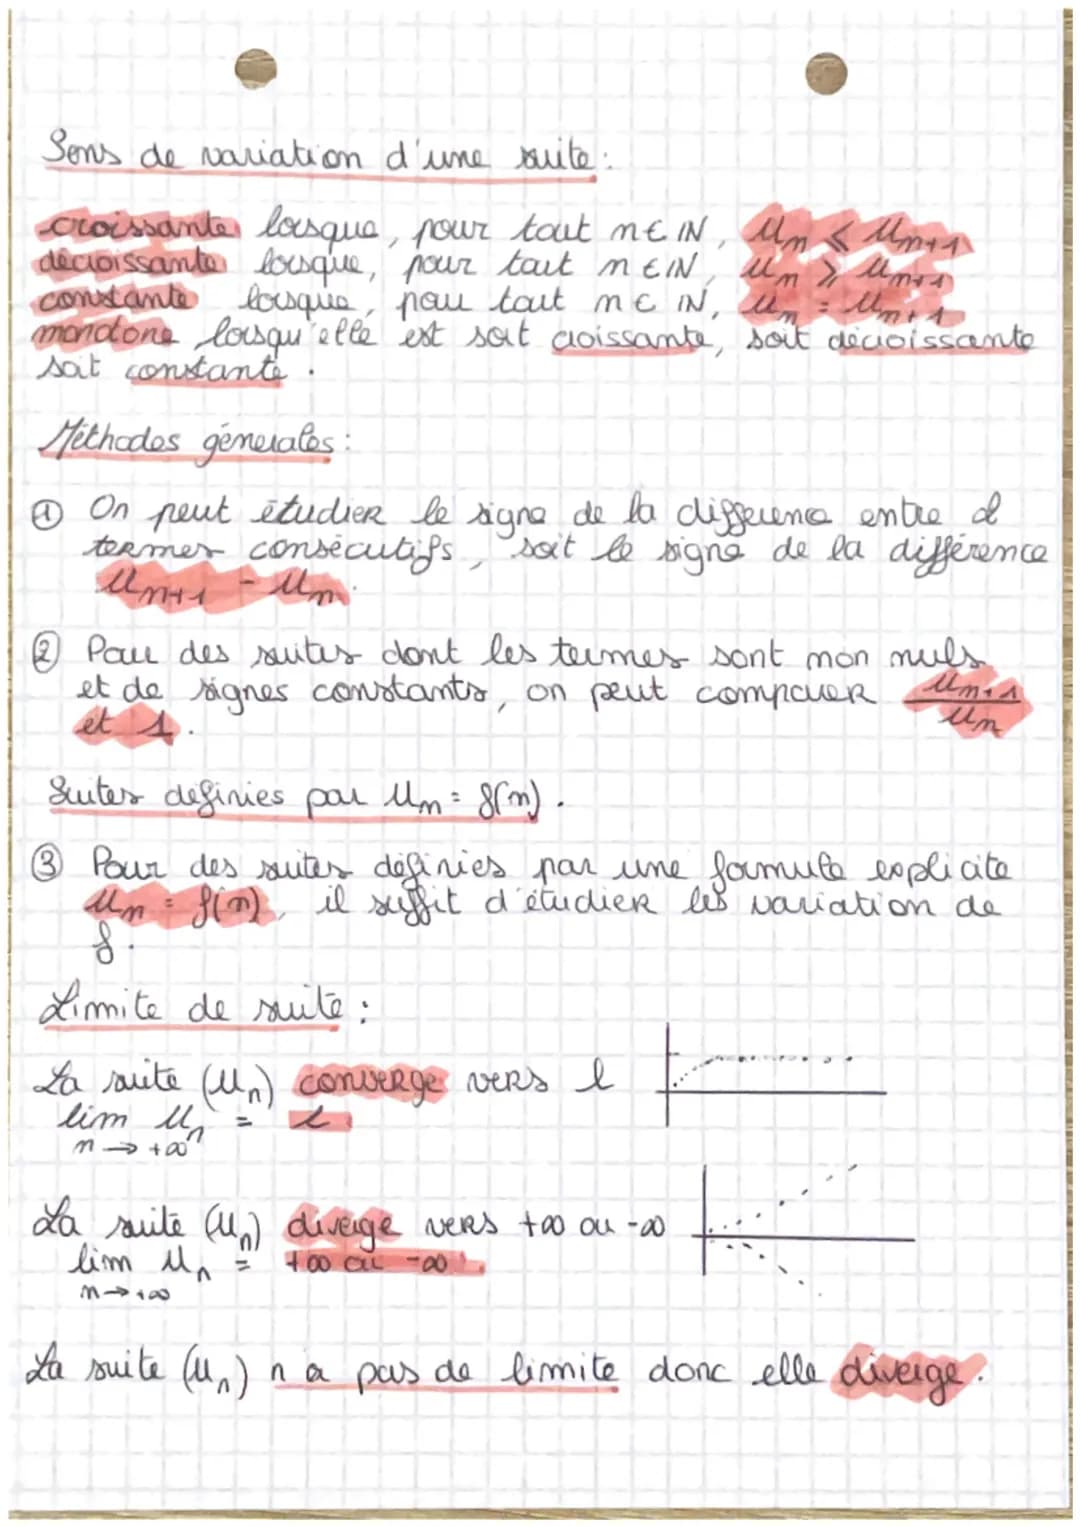 Sens de variation d'une suite :
croissante lorsque, pour tout n ∈ ℕ, Un ⩽ Un+1
décroissante lorsque, pour tout n ∈ ℕ, Un ⩾ Un+1
constante lorsque, pour tout n ∈ ℕ, Un = Un+1
monotone lorsqu'elle est soit croissante, soit décroissante
soit constante.
Méthodes générales :
① On peut étudier le signe de la différence entre 2
termes consécutifs, soit le signe de la différence
Un+1 - Un.
② Pour des suites dont les termes sont non nuls
et de signes constants, on peut comparer Un+1/Un
et 1.
Suites définies par Un = f(n).
③ Pour des suites définies par une formule explicite
Un = f(n), il suffit d'étudier les variation de
f.
Limite de suite :
La suite (Un) converge vers l
lim Un = l
n → +∞
La suite (Un) diverge vers +∞ ou -∞
lim Un = +∞ ou -∞
n → +∞
La suite (Un) n'a pas de limite donc elle diverge.